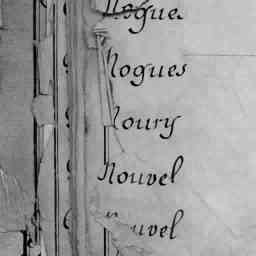 Nogues
Nogues
Noury
Nouvel
Nouvel